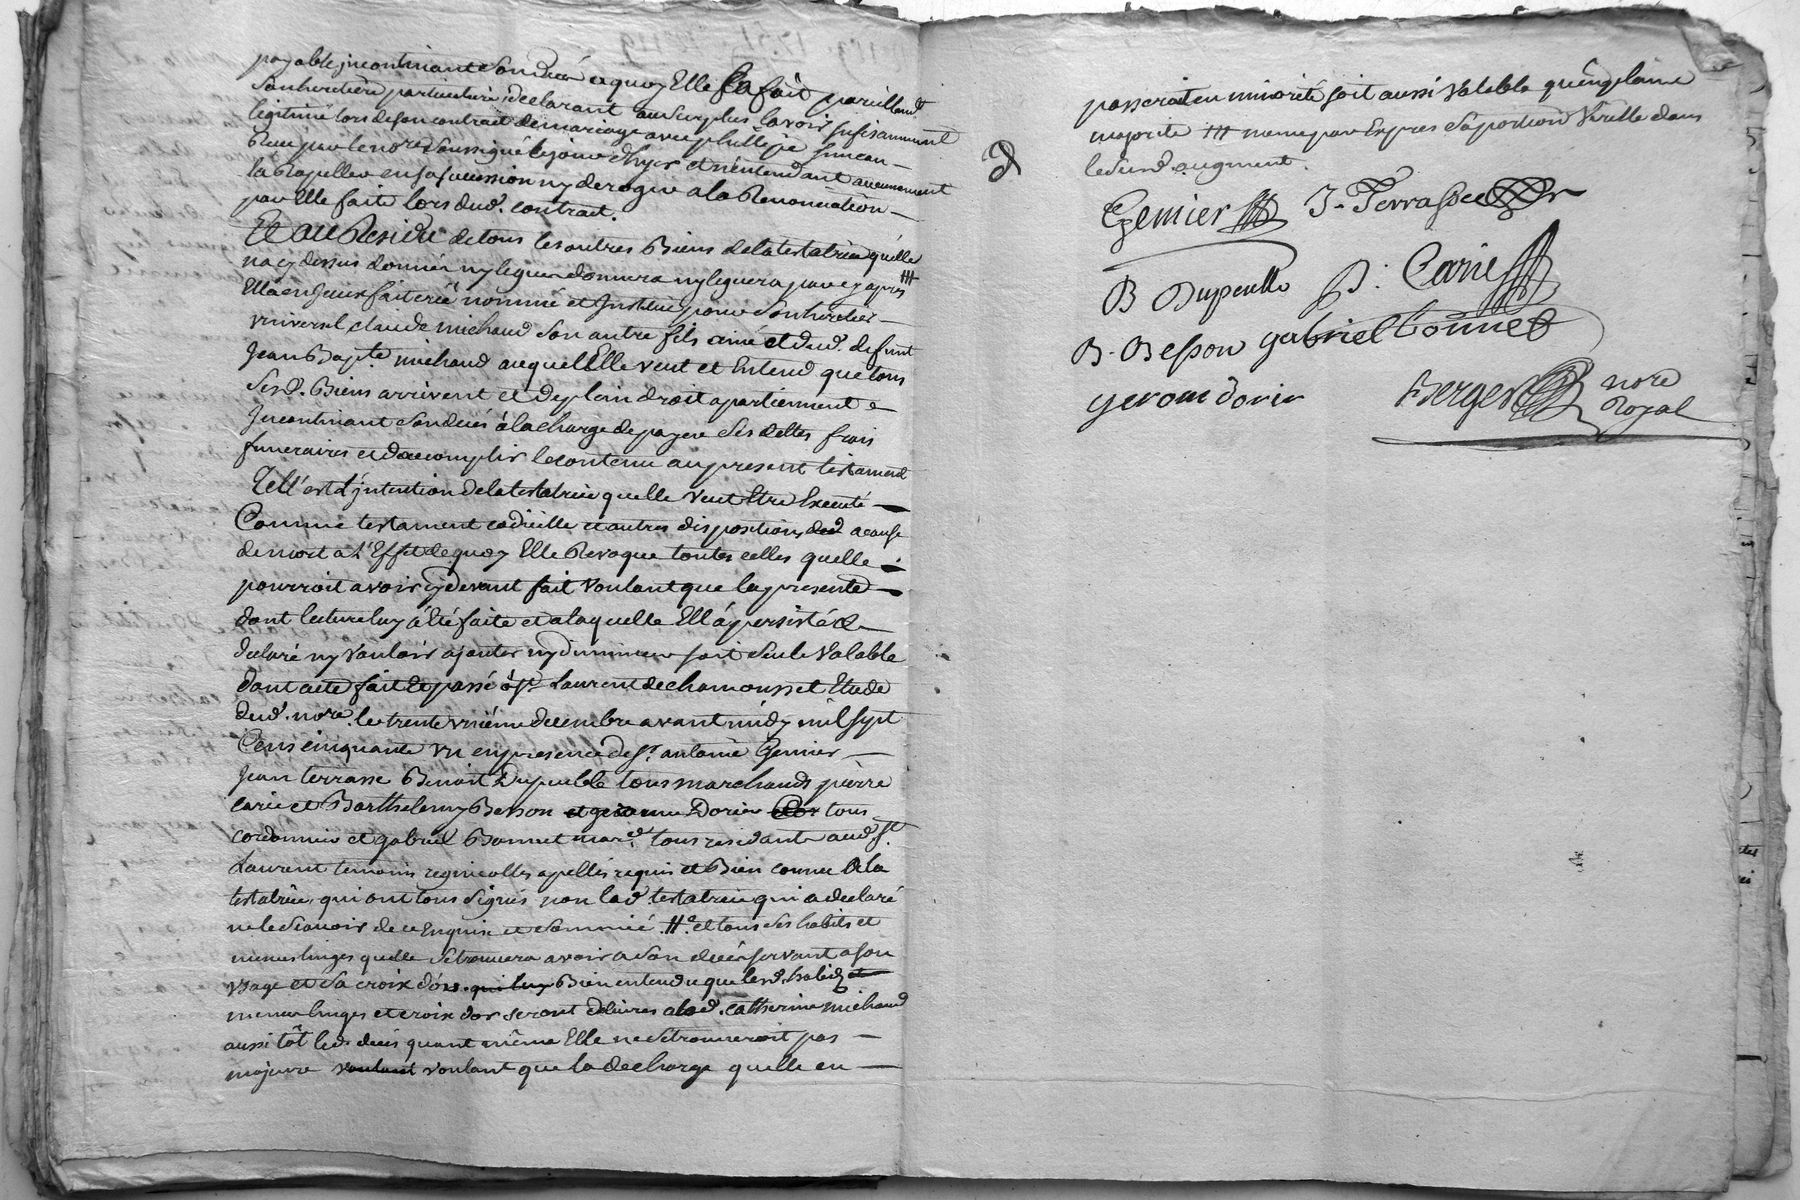 payable jncontinant son decés et quoy Elle la fait pareillemt
son heritiere particuliere declarant au surplus lavoir sufisamment
legitimé lors de son contrat de mariage avec philippe
Reçu par le nore soussigné le jour d'hyer et n'entendant aucunement
la Rapeller en sa sucession ny deroger a la Renonciation
par Elle faite lors dud. contrat.
Et au Residu de tous les autres Biens de la testatrice qu'elle
na cy dessus donnée ny leguee donnera ny leguera par cy apres ###
Elle en Jceux fait creé nommé et Jnstitué pour son heritier
vniversel claude michaud son autre fils ainé et dud. defunt
Jean Bapte. michaud auquel Elle veut et Entend que tous
sesd. Biens arrivent et de plein droit apartiennent
Jncontinant son decés à la charge de payer ses dettes frais
funeraires et daccomplir le contenu au present testament
Tell' est l'jntention de la testatrice quelle veut Etre Executé
Comme testament codicille et autres dispositions a cause
de mort a L'Effet de quoy Elle Revoque toutes celles quelle
pourroit avoir cy devant fait voulant que la presente
dont lecture luy à été faite et a laquelle Ell' à persisté &
declaré ny vouloir ajouter ny diminuer soit seule valable
dont acte fait et passé à st Laurent de chamousset Etude
dud. nore. le trente vniéme decembre avant midy mil sept
Cens cinquante vn en presence de sr. antoine Gemier
Jean terrasse Benoit Dupeuble tous marchands pierre
carie et Barthelemy Besson et gerome Dorier tous
cordonnier et gabriel Bonnet marcd. tous residants aud st.
Laurent temoins regnicolles apellés requis et Bien connu de la
testatrice qui ont tous signés non lad. testatrice qui a declaré
ne le scavoir de ce Enquise et sommée. ## et tous ses habits et
menus linges quelle se trouvera avoir a son decés servant a son
vsage et sa croix d'or qui luy Bien entendu que lesd. habits et
menu linges et croix dor seront délivrés a lad. catherine michaud
aussi tôt led. decés quant même Elle ne se trouveroit pas
majeure voulant voulant que la decharge quelle en
passeroit en minorité soit aussi valable qu'en plaine
majorité ### meme par Expres sa portion Virille dans
le surd. augment.
Gemier J. Terrasse
B Dupeuble P. Carie
B. Besson gabriel bonnet
gerome dorier Berger nore
Royal